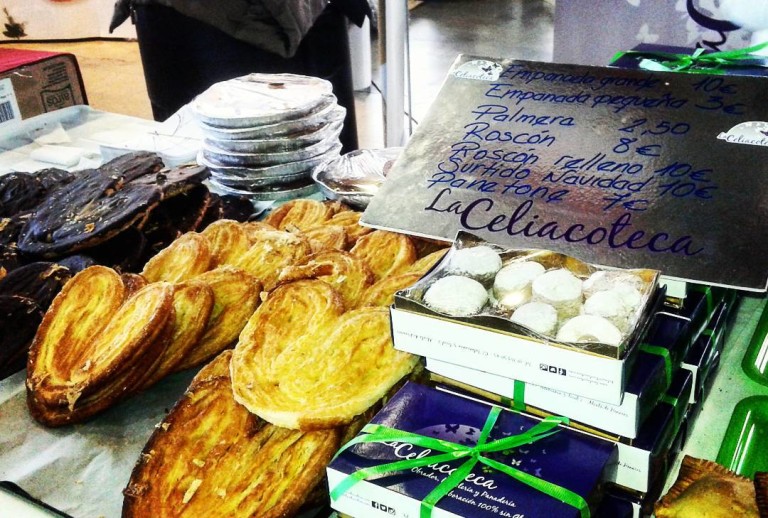 Empanada grande 10€
Empanada pequeña 3€
Palmera 2,50
Roscón 8€
Roscón relleno 10€
Surtido Navidad 10€
Panetone 7€
La Celiacoteca
La Celiacoteca
La Celiacoteca
Obrador, y Panadería
100% sin